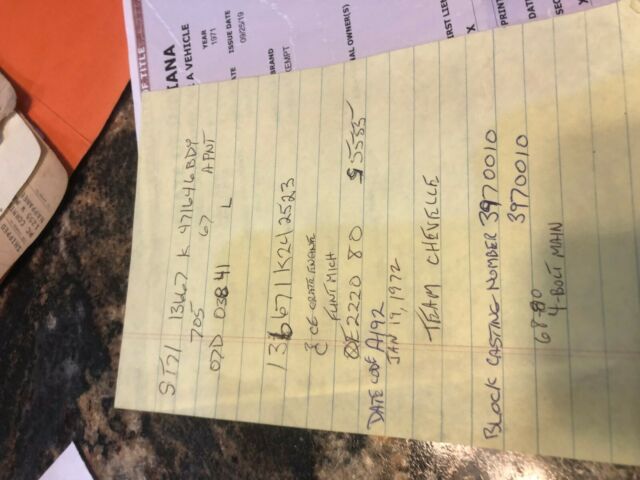 OF TITLE
IANA
A VEHICLE
YEAR
1971
ISSUE DATE
09/25/19
BRAND
EXEMPT
AL OWNER(S)
IRST LIEN
X
PRINT
DAT
X
ST71 13667 K 971646 BDY
705 67 A PNT
07D 03841 L
136671K242523
CE-CRATE ENGINE
FLINT MICH
2220 80
DATE CODE A192
JAN 19, 1972
TEAM CHEVELLE
BLOCK CASTING NUMBER 3970010
3970010
4-BOLT MAIN